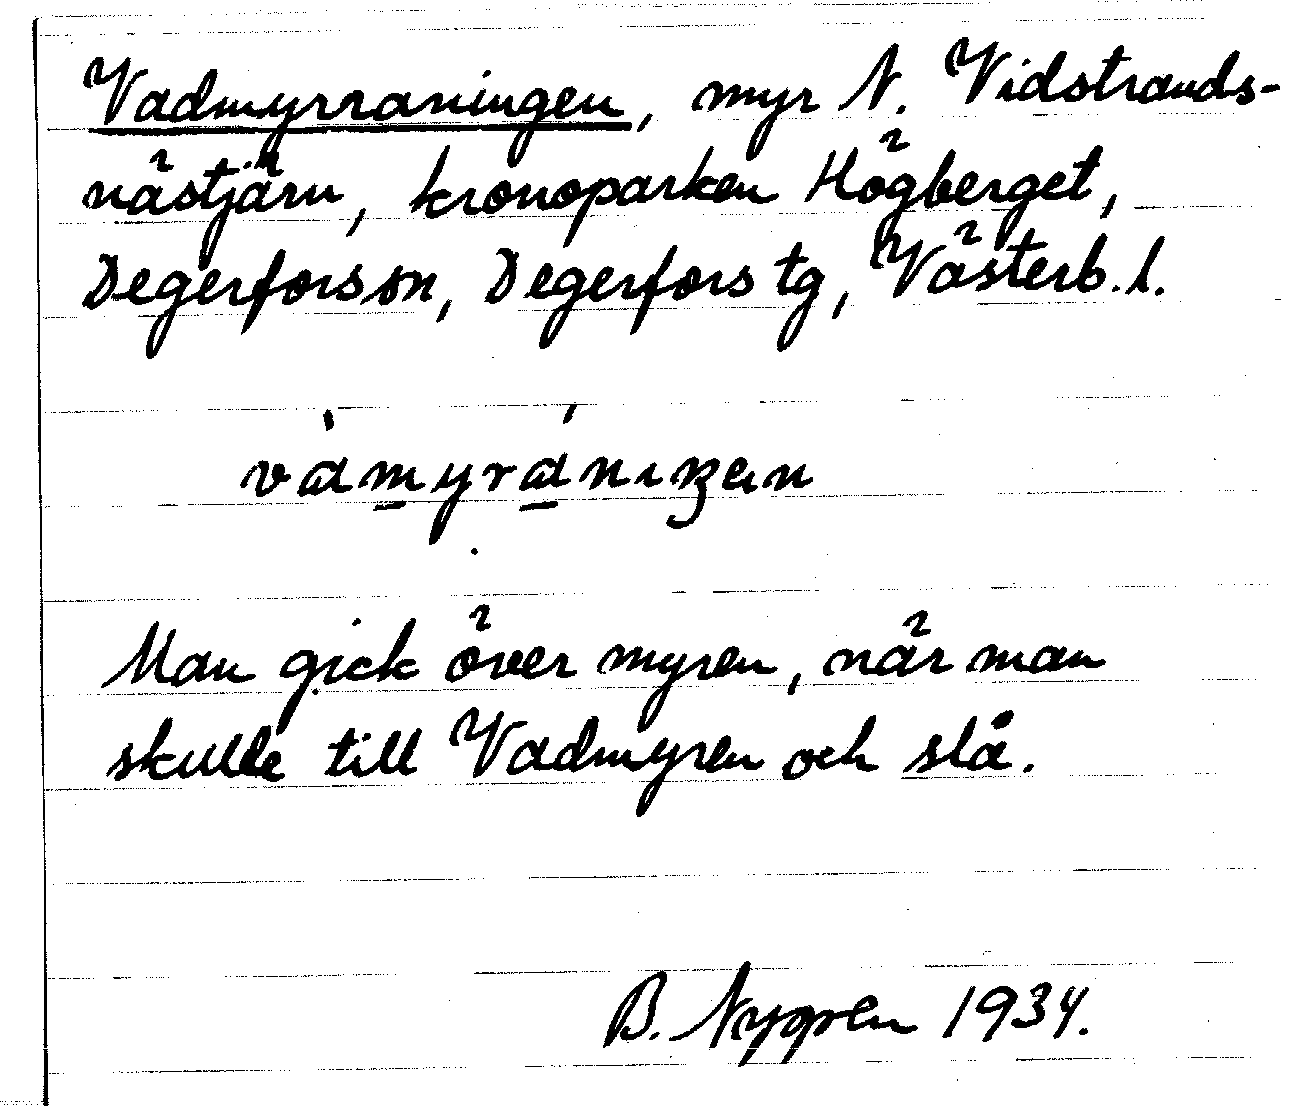 Vadmyrraningen, myr N. Vidstrands-
nästjärn, kronoparken Högberget,
Degerfors sn, Degerfors tg, Västerb. l.
Man gick över myren, när man
skulle till Vadmyren och slå.
B. Nygren 1934.